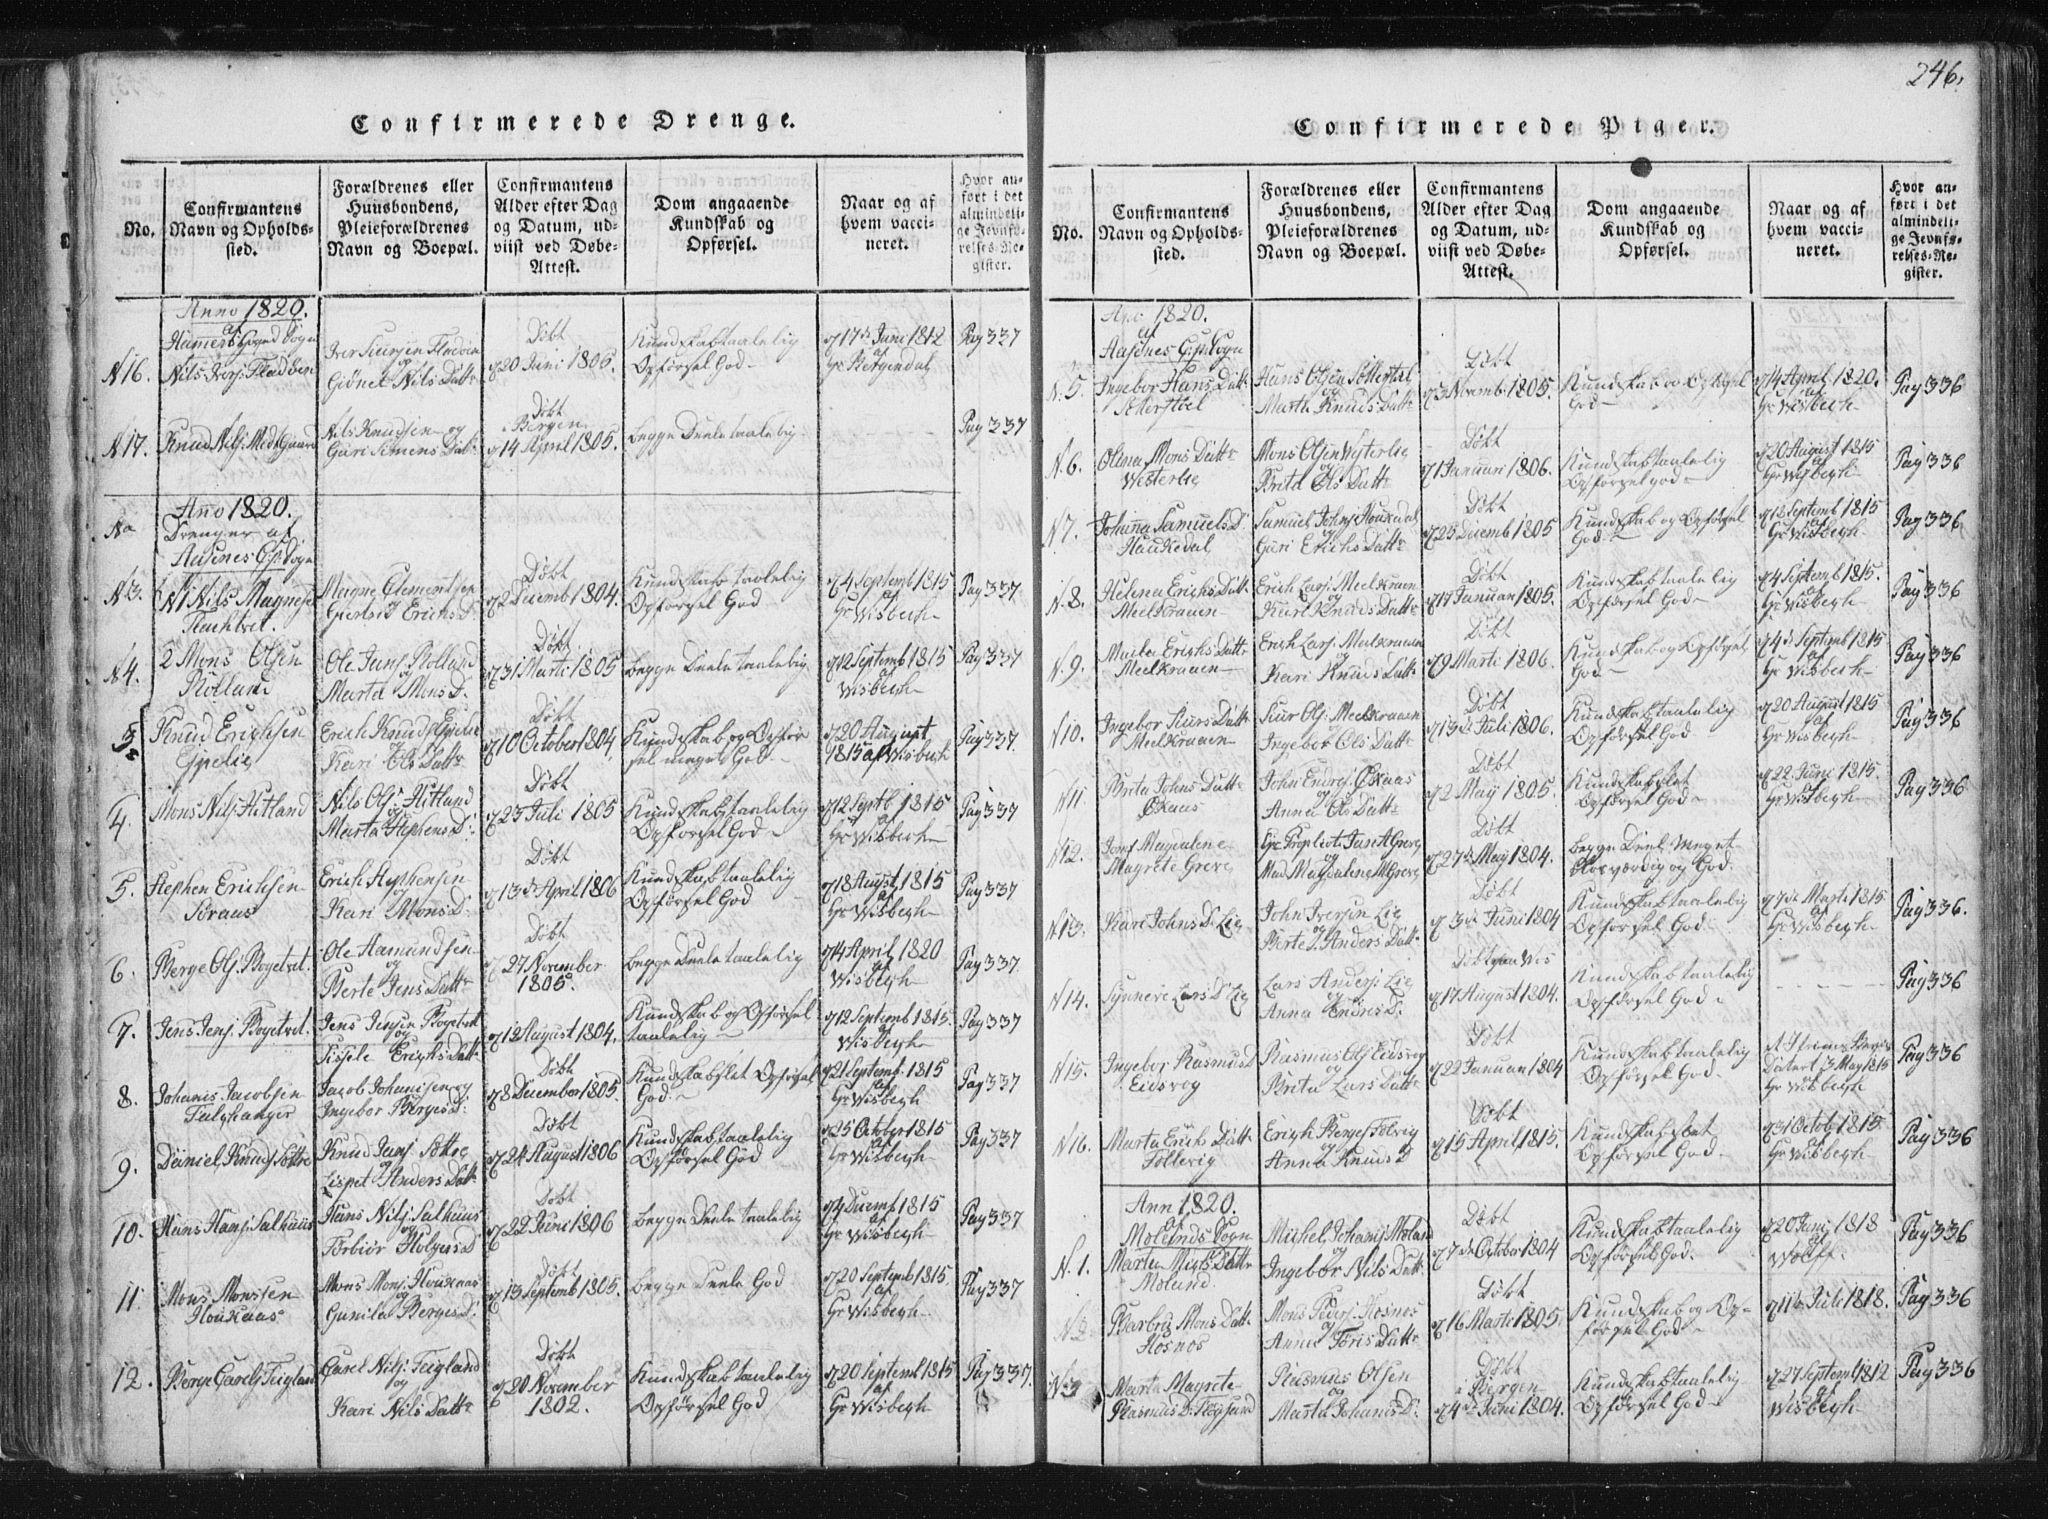 246.
Confirmerede Drenge.
No.
Confirmantens
Navn og Opholds-
sted.
Forældrenes eller
Huusbondens,
Pleieforældrenes
Navn og Boepæl.
Confirmantens
Alder efter Dag
og Datum, ud-
viist ved Døbe-
Attest.
Dom angaaende
Kundskab og
Opførsel.
Naar og af
hvem vacci-
neret.
Hvor an-
ført i det
almindeli-
ge Jevnfø-
relses-Re-
gister.
Anno 1820.
af
Hammers Sogn
N 16.
Nils
Iver
og
Nils Datt
Døbt
20 Juni 1805.
Kundskab taalelig
Opførsel God
17de Juni 1812
af
Hr Bergendal
Pag 337
N 17.
Knud Nilsj
Nils Knudsen og
Guri Simens Datt
Døbt
Bergen
14 April 1805.
begge Deele taalelig
Pag 337
No
Ano 1820.
Drenger af
Sogn
N 3.
N 1 Nils Magnesen
Magne Clementsen
og Erichs D.
Døbt
2 Decemb 1804.
Kundskab taalelig
Opførsel God
4 Septemb 1815
af
Hr Wisbech
Pag 337
N 4.
2 Mons Olsen
Rolland
Ole Jensj Rolland
og
Marta Mons D.
Døbt
31 Marti 1805
begge Deele taalelig
12 Septemb 1815
af
Wisbech
Pag 337
Knud Erichsen
Erich Knuds
og
Kari Ols Datt
Døbt
10 October 1804.
Kundskab og Opfør
sel meget God
20 August
1815 af Wisbech
Pag 337
4.
Mons Nilsj Hitland
Nils Olsj Hitland
og
Marta Stephens D.
Døbt
23 Juli 1805
Kundskab taalelig
Opførsel God
12 Septb 1815
af
Hr Wisbech
Pag 337
5.
Stephen Erichsen
Soraas
Erich Stephensen
og
Kari Mons D.
Døbt
13de April 1806
Kundskab taalelig
Opførsel God
18 August 1815
af
Hr Wisbech
Pag 337
6.
Berge Olsj Bogetvet.
Ole Aamundsen
og
Berte Jens Datt
Døbt
27 November
1805.
begge Deele taalelig
4 April 1820
af
Wisbech
Pag 337
7.
Jens Jensj Bogetvet.
Jens Jensen Bogetvet
og
Sissele Erichs Datt
12 August 1804.
Kundskab og Opførsel
taalelig
12 Septemb 1815.
af
Wisbech
Pag 337
8.
Johanis Jacobsen
Jacob Johanisen og
Ingebor Berges D.
Døbt
8 December 1805.
Kundskab slet Opførsel
God.
21 Septemb. 1815
af
Hr Wisbech
Pag 337
9.
Daniel Knudsj Søttre
Knud Jensj Søttre
og
Lispet Anders Datt
Døbt
24 August 1806
Kundskab taalelig
Opførsel God
25 October 1815
af
Hr Wisbech
Pag 337
10.
Hans Hansj Salhuus
Hans Nilsj Salhuus
og
Torbiør Holgers D
Døbt
22 Juni 1806
begge Deele taalelig
4 Decemb 1815
af
Hr Wisbech
Pag 337
11.
Mons Monsen
Houkaas
Mons Monsj Houkaas
og
Gunila Berges D.
Døbt
13 Septemb 1805.
begge Deele God
20 Septemb 1815
af
Hr Wisbech
Pag 337
12.
Berge Carelsj Teigland
Carel Nilsj Teigland
og
Kari Nils Datt
Døbt
20 November
1802.
Kundskab taalelig
Opførsel God
20 Septemb 1815
af
Hr Wisbech
Pag 337
Confirmerede Piger.
No.
Confirmantens
Navn og Opholds-
sted.
Forældrenes eller
Huusbondens,
Pleieforældrenes
Navn og Boepæl.
Confirmantens
Alder efter Dag
og Datum, ud-
viist ved Døbe-
Attest.
Dom angaaende
Kundskab og
Opførsel.
Naar og af
hvem vacci-
neret.
Hvor an-
ført i det
almindeli-
ge Jevnfø-
relses-Re-
gister.
1820.
af
Sogn
N. 5.
Ingebor Hans Datt
Hans Olsen
og
Marta Knuds Datt
Døbt
3 Novemb 1805.
Kundskab og Opførsel
God
14 April 1820.
Hr Wisbech
Pag 336
N. 6
Olena Mons Datt
Westerlie
Mons Olsen Westerlie
og
Brita Ols Datt
Døbt
1 Januari 1806.
Kundskab taalelig
Opførsel god
20 August 1815
af
Hr Wisbech
Pag 336
N 7.
Johanna Samuels D.
Haukedal
Samuel Johnsj Houkedal
Guri Erichs Datt
Døbt
25 Decemb 1805
Kundskab og Opførsel
God
12 Septemb 1815
af
Hr Wisbech
Pag 336
N. 8.
Helena Erichs Datt
Meelkraaen
Erich Larsj Meelkraaen
og
Kari Knuds Datt
Døbt
17 Januari 1805.
Kundskab taalelig
Opførsel God
4 Septemb 1815.
af
Hr Wisbech
Pag 336
N. 9.
Erichs Datt
Meelkraaen
Erich Larsj Meelkraaen
og
Kari Knuds Datt
Døbt
9 Marti 1806.
Kundskab og Opførsel
God
4de Septemb 1815
af
Wisbech
Pag 336
N10.
Ingebor Siurs Datt
Meelkraaen
Siur Olsj Meelkraaen
Ingebor Ols Datt
Døbt
13de Juli 1806.
Kundskab taalelig
Opførsel God
20 August 1815
af
Hr Wisbech
Pag 336
N11.
Brita Johns Datt
Øxaas
John Endresj Øxaas
og
Anna Ols Datt
Døbt
2 May 1805.
Kundskab slet
Opførsel God
22 Juni 1815.
af
Hr Wisbech
Pag 336
N12.
Jomf Magdalene
Magrete Greve
Hr Jans A Greve
og
Mad Magdalene M Greve
Døbt
27de May 1804.
begge Deel Meget
Roesværdig og God.
N13.
Kari Johns D. Lie
John Iversen Lie
og
Berte Anders Datt
Døbt
3de Juni 1804
Kundskab taalelig
Opførsel God
7de Marti 1815
af
Hr Wisbech
Pag 336.
N14.
Synneve Lars D Lie
Lars Andersj Lie
og
Anna Endres D.
Døbt
17 August 1804.
Kundskab taalelig
Opførsel God
Pag 336
N15.
Ingebor Rasmus D
Eidsvog
Rasmus Olsj Eidsvog
og
Brita Lars Datt
Døbt
22 Januari 1804
Kundskab taalelig
Opførsel God.
Datert 13 May 1815
Hr Wisbech
Pag 336
N16.
Marta Erichs Datt
Tollevig
Erich Bergesj Tolvig
og
Anna Knuds D
Døbt
15 April 1815.
Kundskab slet
Opførsel God
31 Octob 1815.
af
Hr Wisbech
Pag 336
Ann 1820.
af
Molunds Sogn
N. 1.
Marta Michs Datt
Molund.
Michel Johansj Moland
og
Ingebor Nils Datt
Døbt
7de October 1804
Kundskab taalelig
Opførsel God.
20 Juni 1818
af
Wolff
Pag 336
N 2.
Barbra Mons Datt
Hosnos
Mons Pedersj Hosnos
og
Anna Toris Datt
Døbt
16 Marti 1805.
Kundskab og Op-
førsel God
11te Juli 1818.
Pag 336
N 3
Marta Magrete
Rasmus D.
Rasmus Olsen
og
Marta Johanis D.
Døbt
i Bergen
4de Juni 1804.
Kundskab taalelig
Opførsel God
27 Septemb 1812
af
Wisbech
Pag 336